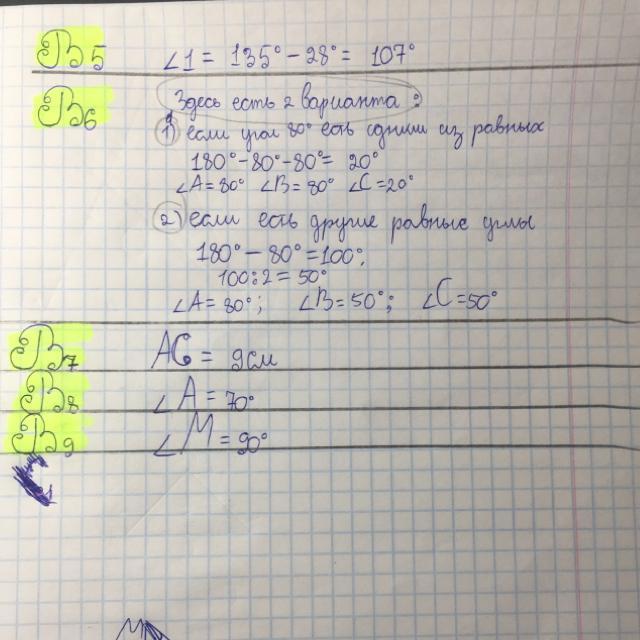 В5 ∠1 = 135° - 28° = 107°
В6 Здесь есть 2 варианта:
1) если угол 80° есть одним из равных
180° - 80° - 80° = 20°
∠A = 80° ∠B = 80° ∠C = 20°
2) если есть другие равные углы
180° - 80° = 100°;
100 : 2 = 50°
∠A = 80°; ∠B = 50°; ∠C = 50°
В7 AC = 9см
В8 ∠A = 70°
В9 ∠M = 90°